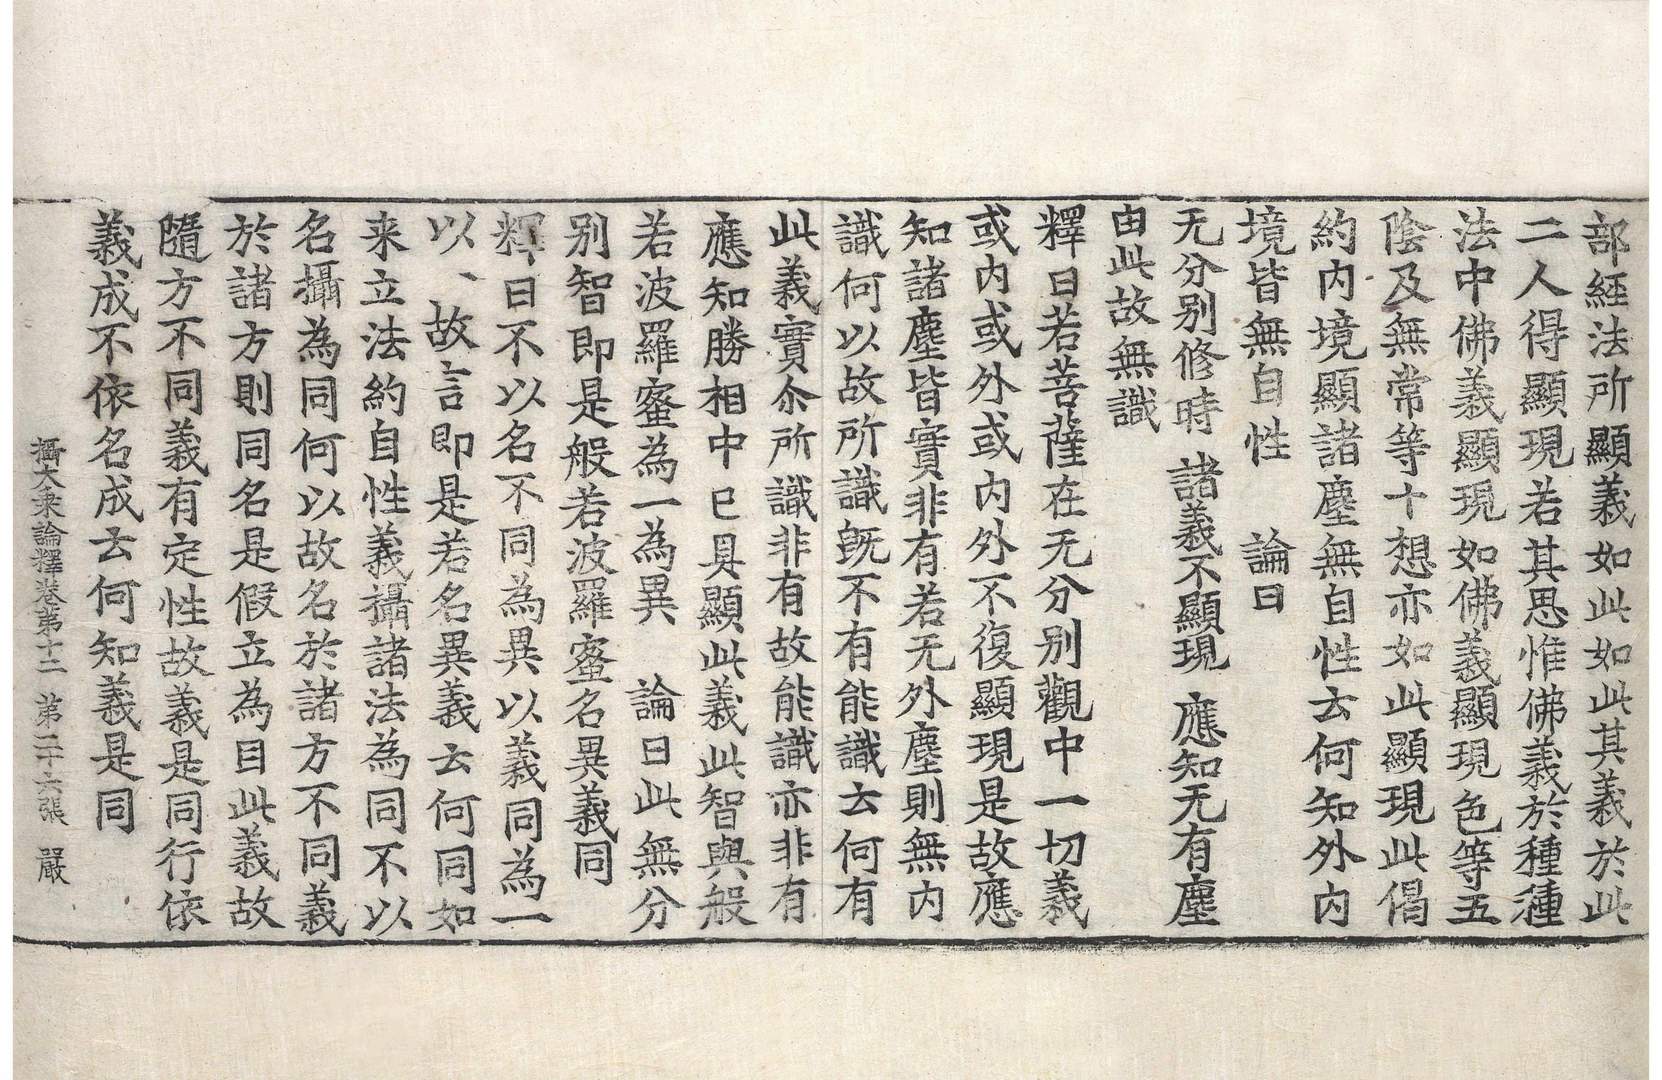 部經法所顯義如此如此其義於此
二人得顯現若其思惟佛義於種種
法中佛義顯現如佛義顯現色等五
陰及無常等十想亦如此顯現此偈
約內境顯諸塵無自性云何知外內
境皆無自性　論曰
无分別修時　諸義不顯現　應知无有塵
由此故無識
釋曰若菩薩在无分別觀中一切義
或內或外或內外不復顯現是故應
知諸塵皆實非有若无外塵則無內
識何以故所識旣不有能識云何有
此義實尒所識非有故能識亦非有
應知勝相中已具顯此義此智與般
若波羅蜜為一為異　論曰此無分
別智即是般若波羅蜜名異義同
釋曰不以名不同為異以義同為一
以、故言即是若名異義云何同如
来立法約自性義攝諸法為同不以
名攝為同何以故名於諸方不同義
於諸方則同名是假立為目此義故
隨方不同義有定性故義是同行依
義成不依名成云何知義是同
攝大乘論釋卷第十二　第二十六張　嚴